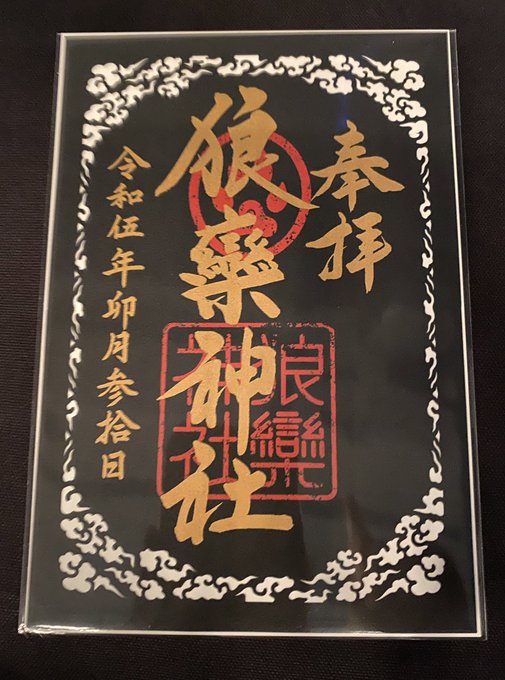 奉拝
狼欒神社
令和伍年卯月参拾日
狼欒
神社